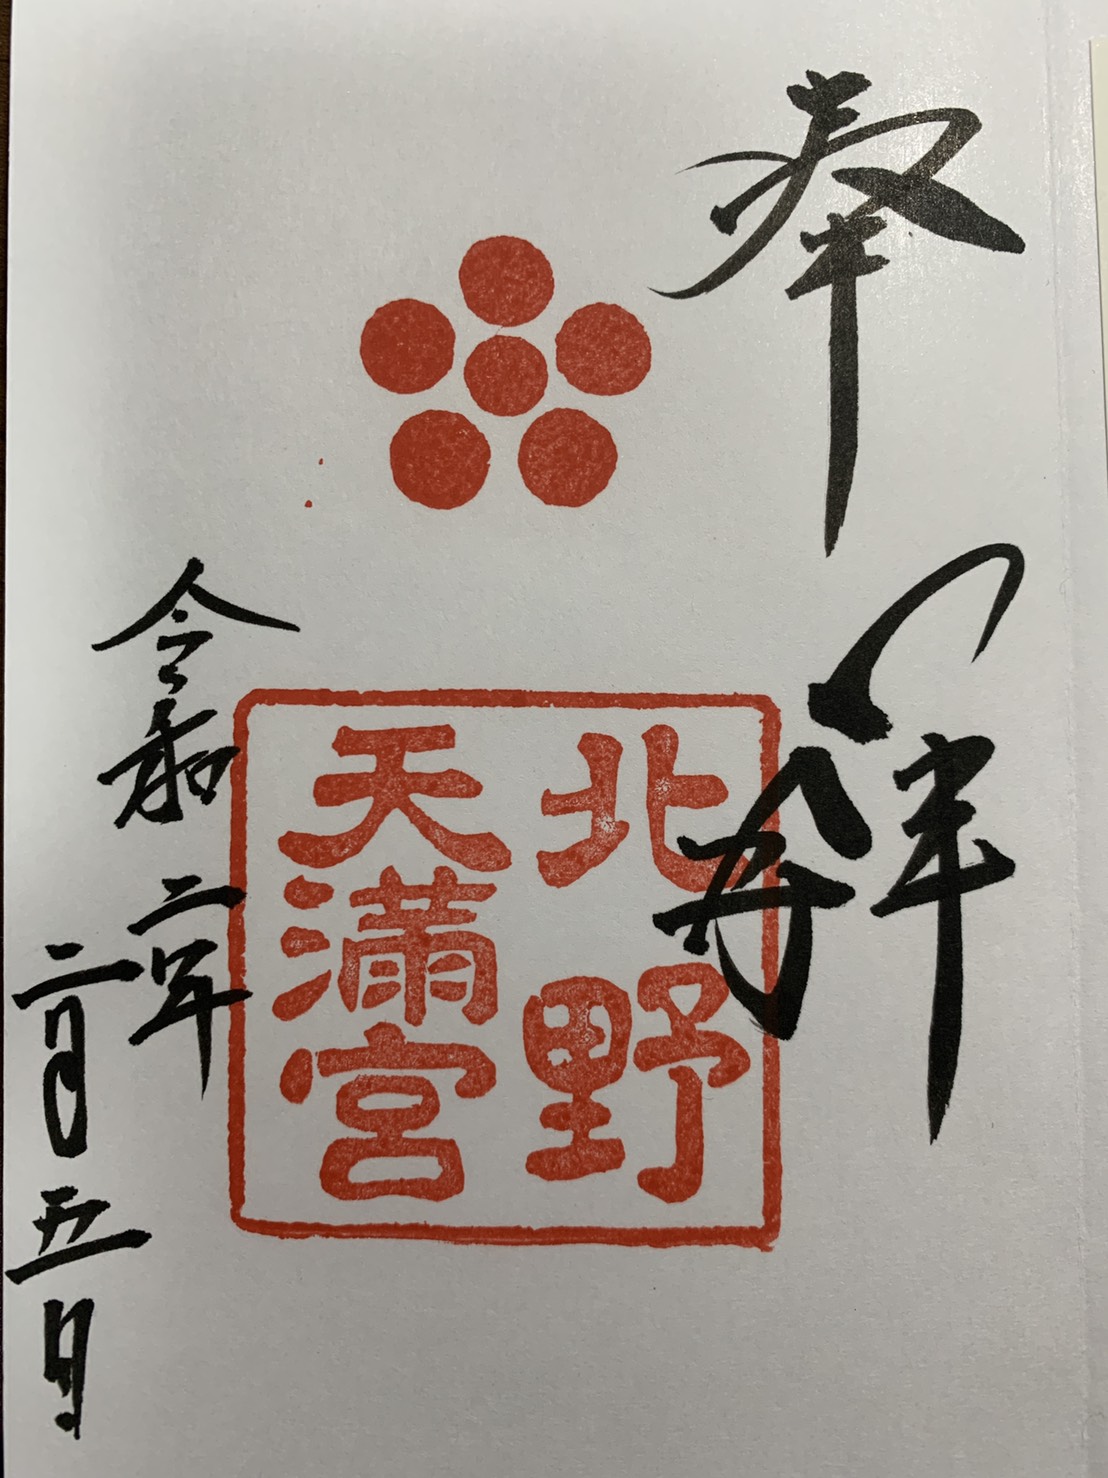 奉拜
北野
天満宮
令和二年
二月五日